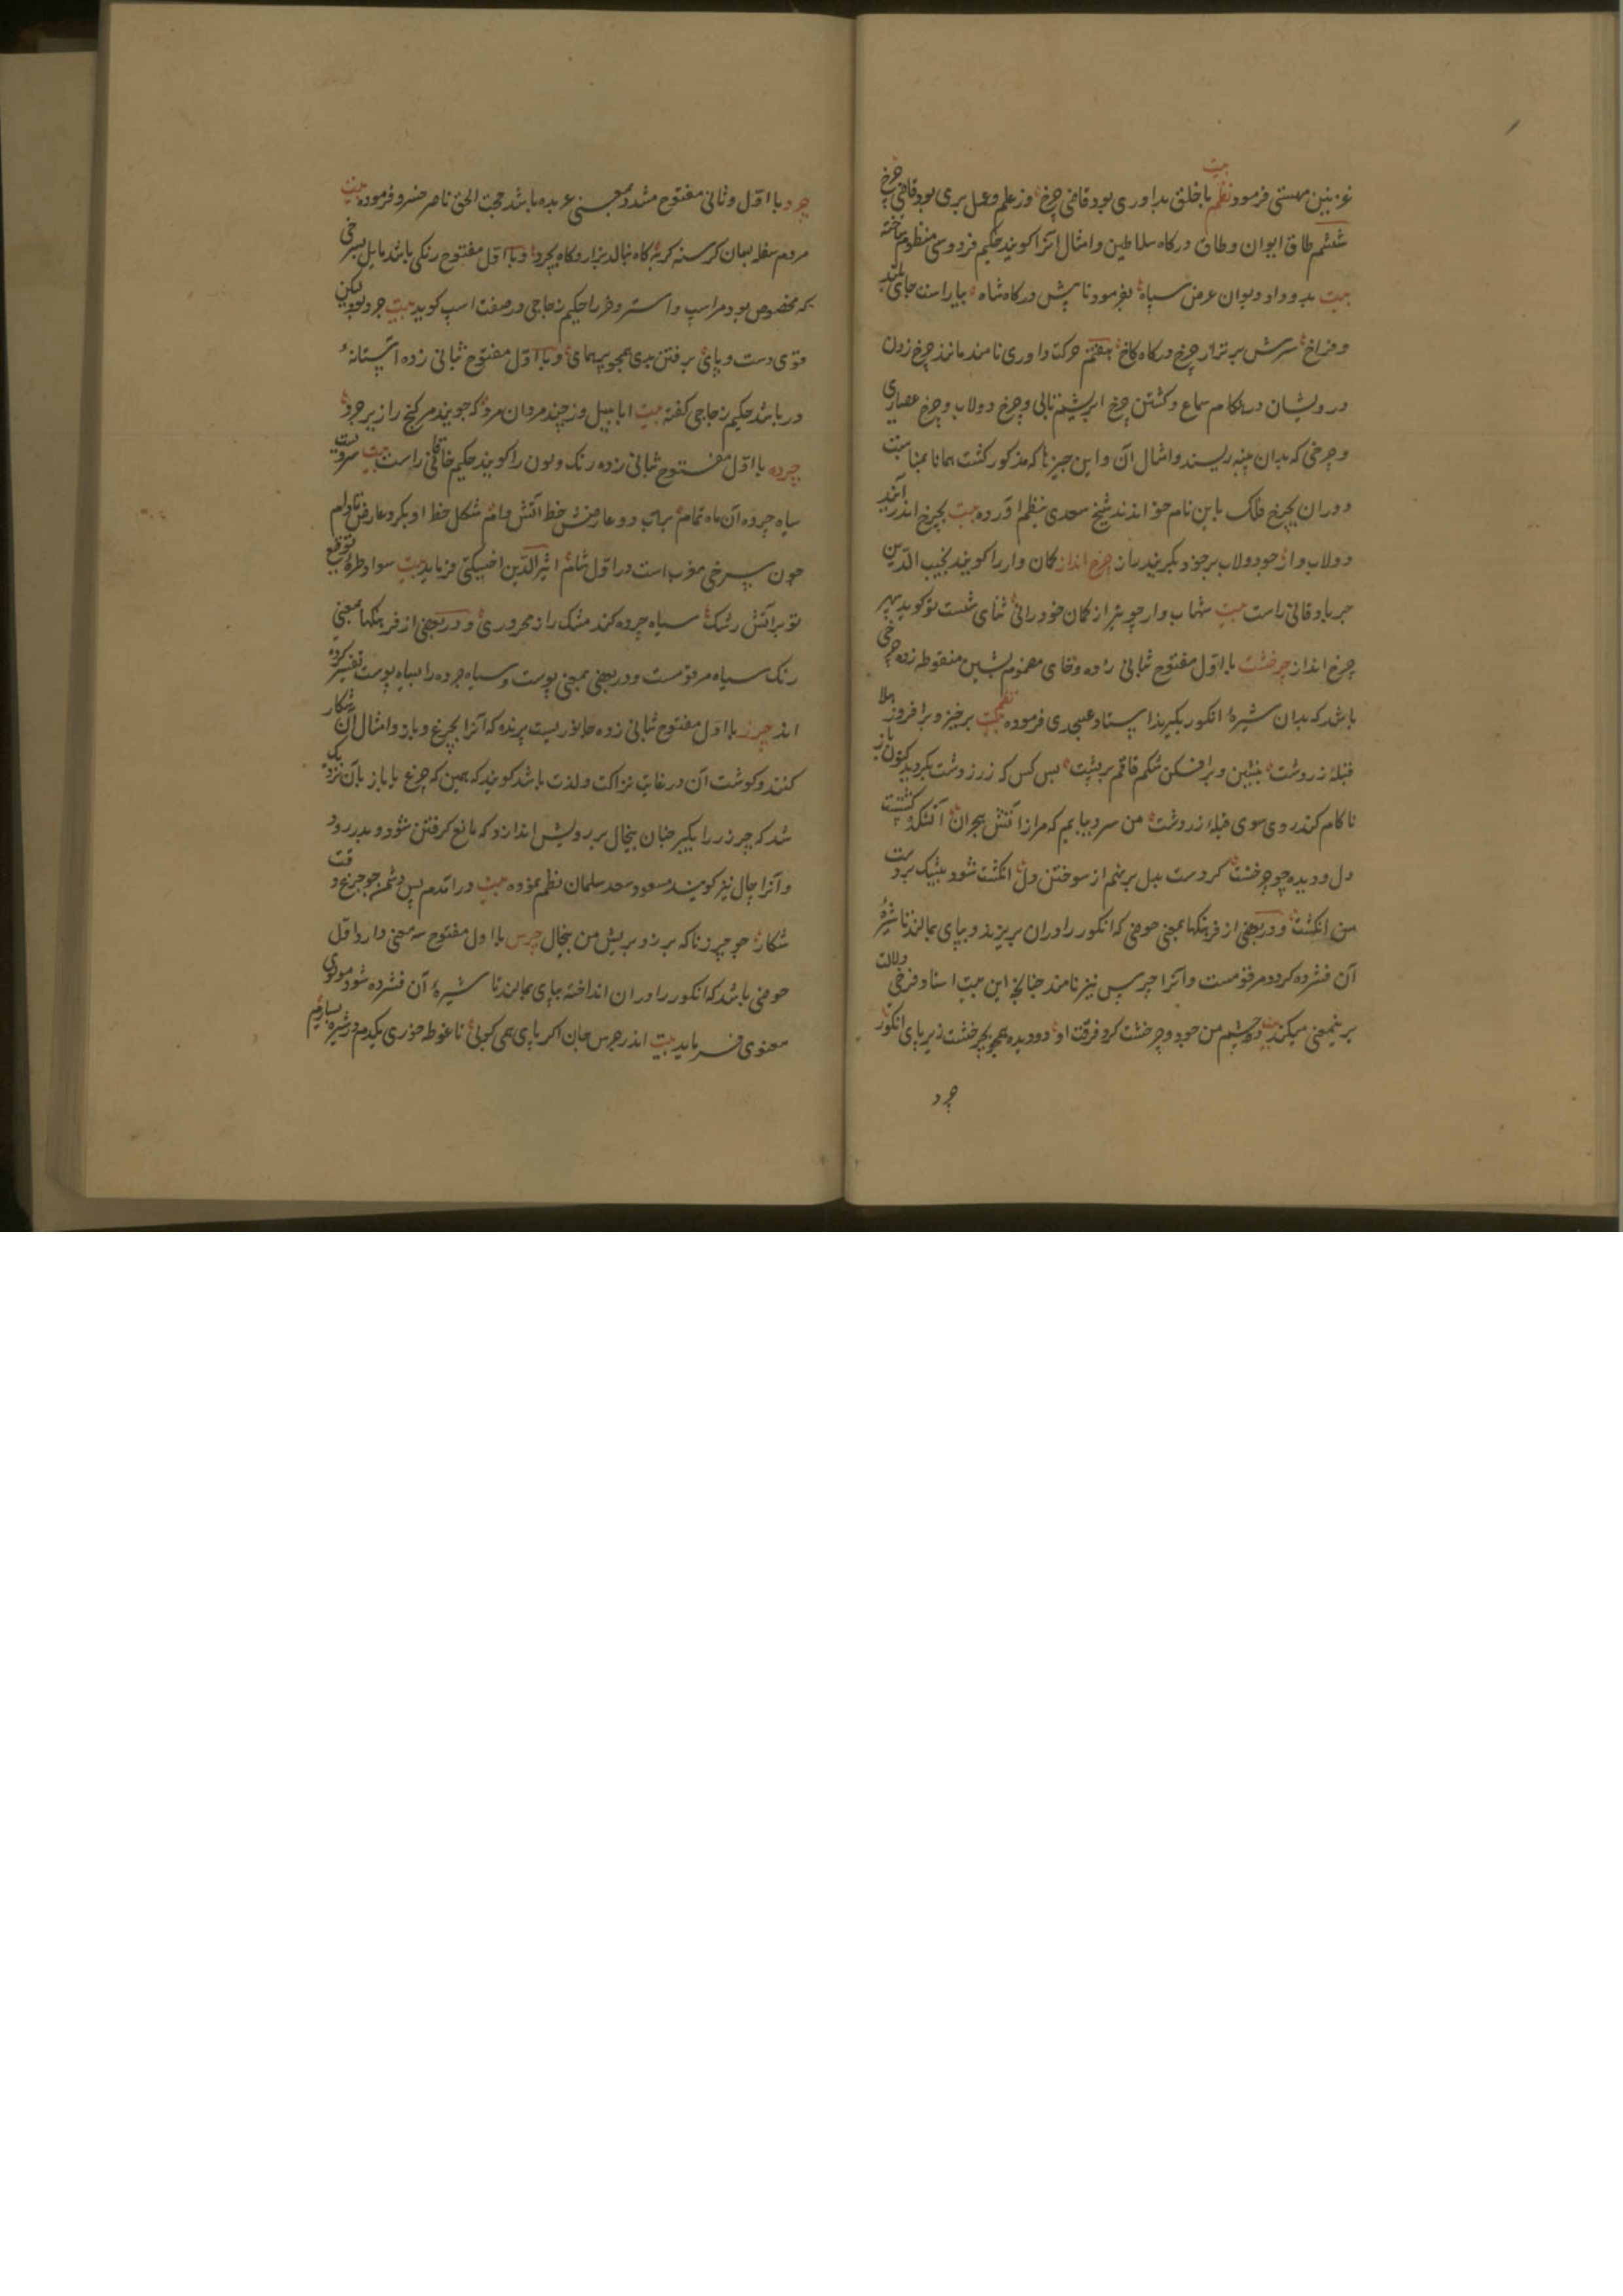 غزنین مهستی فرمود نظم بیت با خلق بداوری بود قاضی چرخ وز علم و عمل بری بود قاضی چرخ
ششم طاق ایوان و طاق درکاه سلاطین و امثال آنرا کویند حکیم فردوسی منظوم ساخته
بیت بدو داد دیوان عرض سپاه بفرمود تا پیش درکاه شاه بیاراست جای بلند
و فراخ سرش برتر از چرخ درکاه کاخ هفتم حرکت داوری نامند مانند چرخ زدن
درویشان در هنکام سماع و کشتن چرخ ابریشم تابی و چرخ دولاب و چرخ عصاری
و چرخی که بدان پنبه ریسند و امثال آن و این چیزها که مذکور کشت همانا بمناسبت
دوران بچرخ فلک باین نام خوانند شیخ سعدی بنظم آورده بیت بچرخ اندر آیند
دولاب وار چو دولاب بر خود بکریند زار چرخ انداز کمان دار را کویند نجیب الدین
جربادقانی راست بیت شهاب وار چو تیر از کمان خود رانی ثنای شست تو کوید سپهر
چرخ انداز چرخشت با اول مفتوح بثانی زده و خای مضموم بشین منقوطه زده چرخی
باشد که بدان شیرهٔ انکور بکیرند استاد عسجدی فرموده نظم بیت برخیز و برافروز هلا
قبلهٔ زردشت بنشین و برافکن شکم قاقم بر پشت بس کس که ز زردشت بکردید کنون باز
ناکام کند روی سوی قبلهٔ زردشت من سرد نیابم که مرا ز آتش هجران آتشکده کشتست
دل و دیده چو چرخشت کر دست بدل برنهم از سوختن دل انکشت شود بیشک بر دست
من انکشت و در بعضی از فرهنکها بمعنی حوضی که انکور را در ان بریزند و بپای بمالند تا شیرهٔ
آن فشرده کردد مرقومست و آنرا چرس نیز نامند چنانچه این بیت استاد فرخی دلالت
برینمعنی میکند بیت دو چشم من چو دو چرخشت کرد فرقت او دو دیده همچو بچرخشت زیر پای انکور
چرد
چرد با اول و ثانی مفتوح مشدد بمعنی عربده باشد حجت الحق ناصر خسرو فرموده بیت
مردم سفله بسان کرسنه کربه کاه بنالد بزار و کاه بچرد و با اول مفتوح رنکی باشد مایل بسرخی
که مخصوص بود مر اسپ و استر و خر را حکیم زجاجی در صفت اسپ کوید بیت چرد بود لیکن
قوی دست و پای برفتن بدی همچو پر همای و با اول مفتوح ثانی زده آستانهٔ
در باشد حکیم زجاجی کفته بیت ابابیل وز چند مردان مرد که جویند مر کنج را زیر چرد
چرده با اول مفتوح بثانی زده رنک و لون را کویند حکیم خاقانی راست بیت سرویست
سیاه چرده آن ماه تمام بر آب دو عارضش خط آتش فام شکل خط او بکرد عارض مادام
چون سرخی مغرب است در اول شام اثیرالدین اخسیکتی فرماید بیت سواد طرهٔ توقیع
تو بر آتش رشک سیاه چرده کند مشک را ز محروری و در بعضی از فرهنکها بمعنی
رنک سیاه مرقومست و در بعضی بمعنی پوست و سیاه چرده را سیاه پوست تفسیر کرده
اند چرز با اول مفتوح بثانی زده جانوریست پرنده که آنرا بچرغ و باز و امثال آن شکار
کنند و کوشت آن در غایت نزاکت و لذت باشد کویند که همین که چرغ یا باز بآن نزدیک
شد که چرز را بکیرد چنان پیخال بر رویش اندازد که مانع کرفتن شود و بدر رود
و آنرا چال نیز کویند مسعود سعد سلمان نظم نموده بیت در آمدم پس دشمن چو چرغ وقت
شکار چو چرز ناکه بر زد بریش من پیخال چرس با اول مفتوح سه معنی دارد اول
حوضی باشد که انکور را در ان انداخته بپای بمالند تا شیره آن فشرده شود مولوی
معنوی فرماید بیت اندر چرس جان اکر پای همی کوبی تا غوطه خوری یکدم در شیرهٔ بسیارم